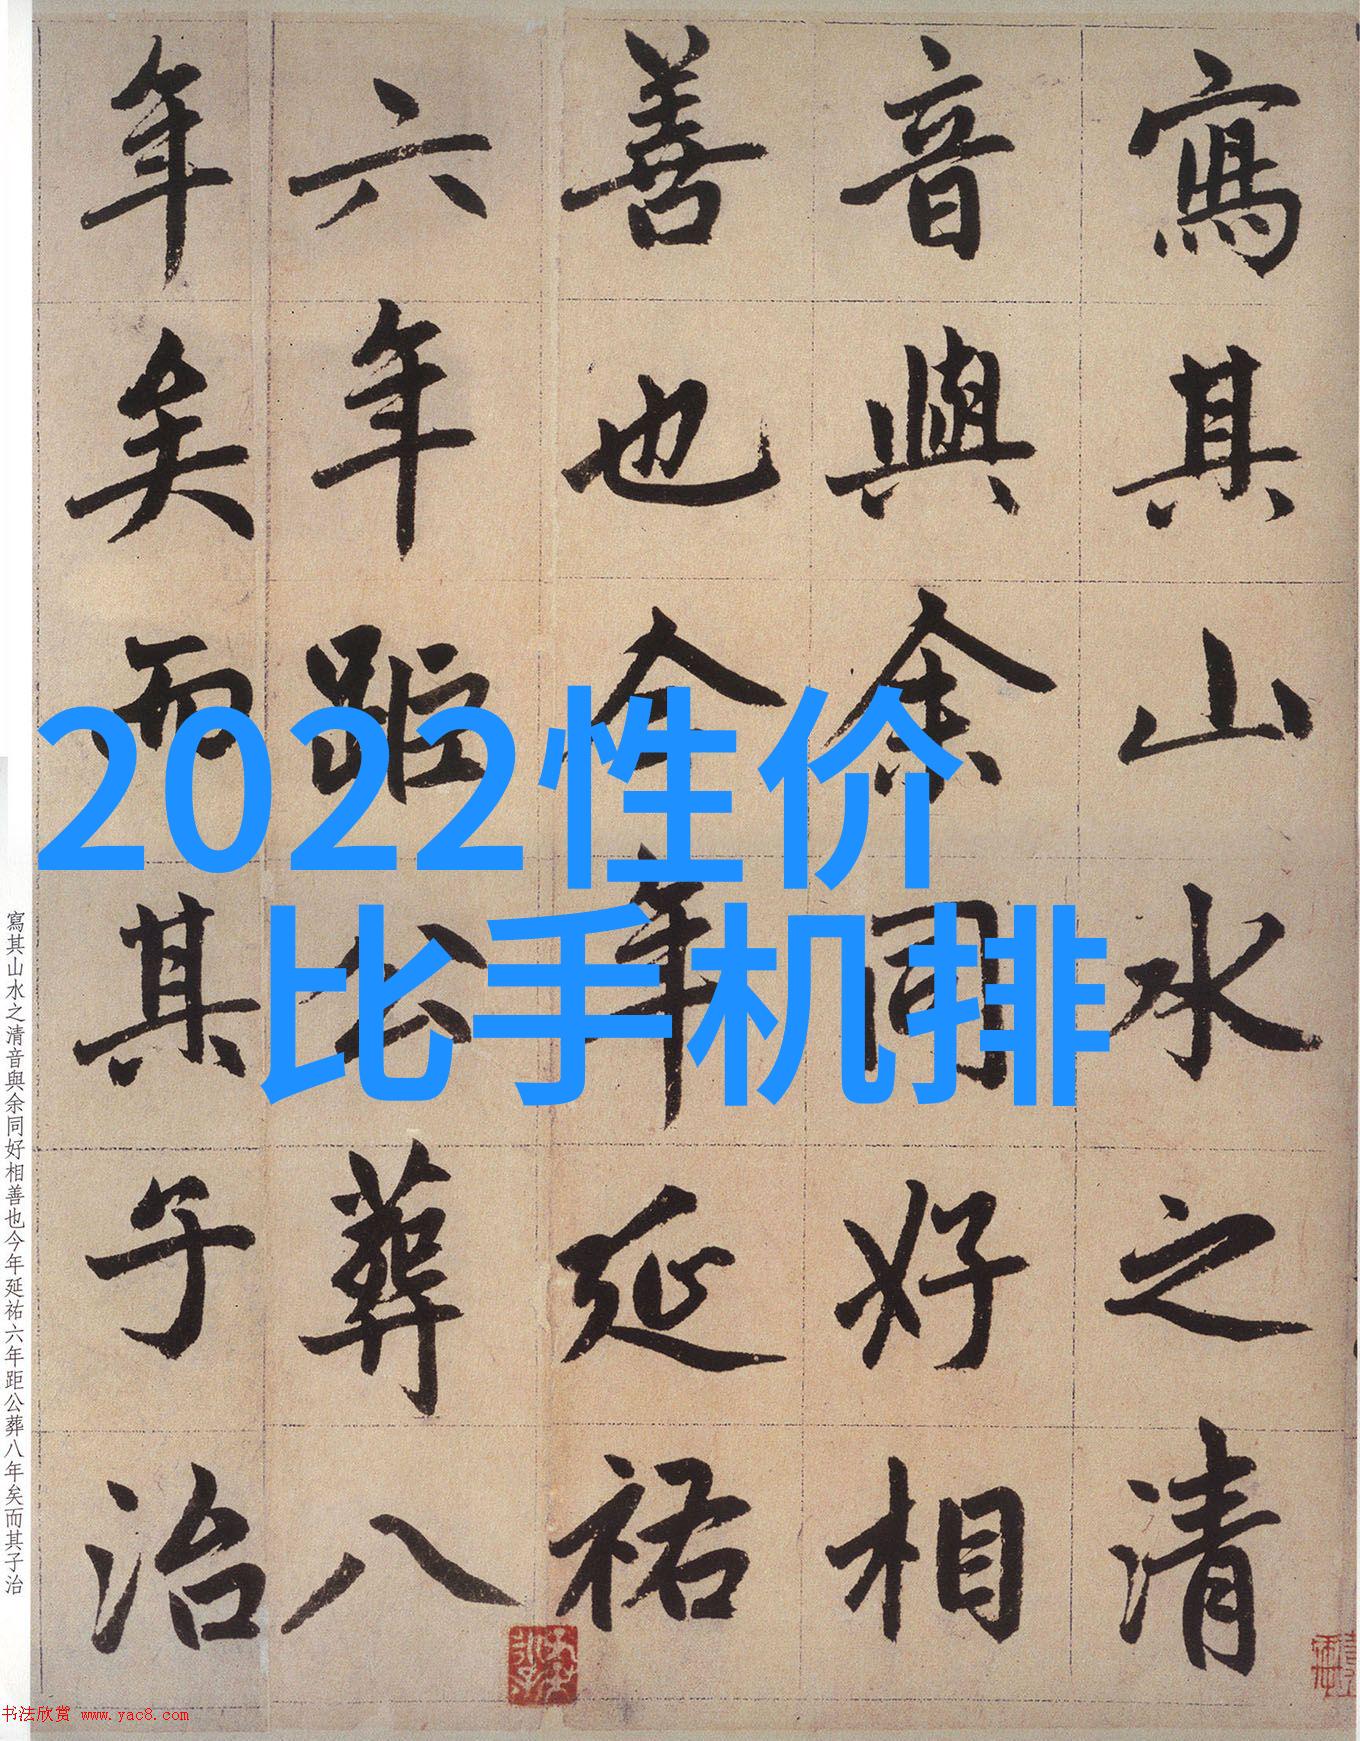 寫其山水之清
音與余同好相
善也今年延祐
六年距公葬八
年矣而其子治
2022性价
比手机排
寫其山水之清音與余同好相善也今年延祐六年距公葬八年矣而其子治
书法欣赏 www.yac8.com